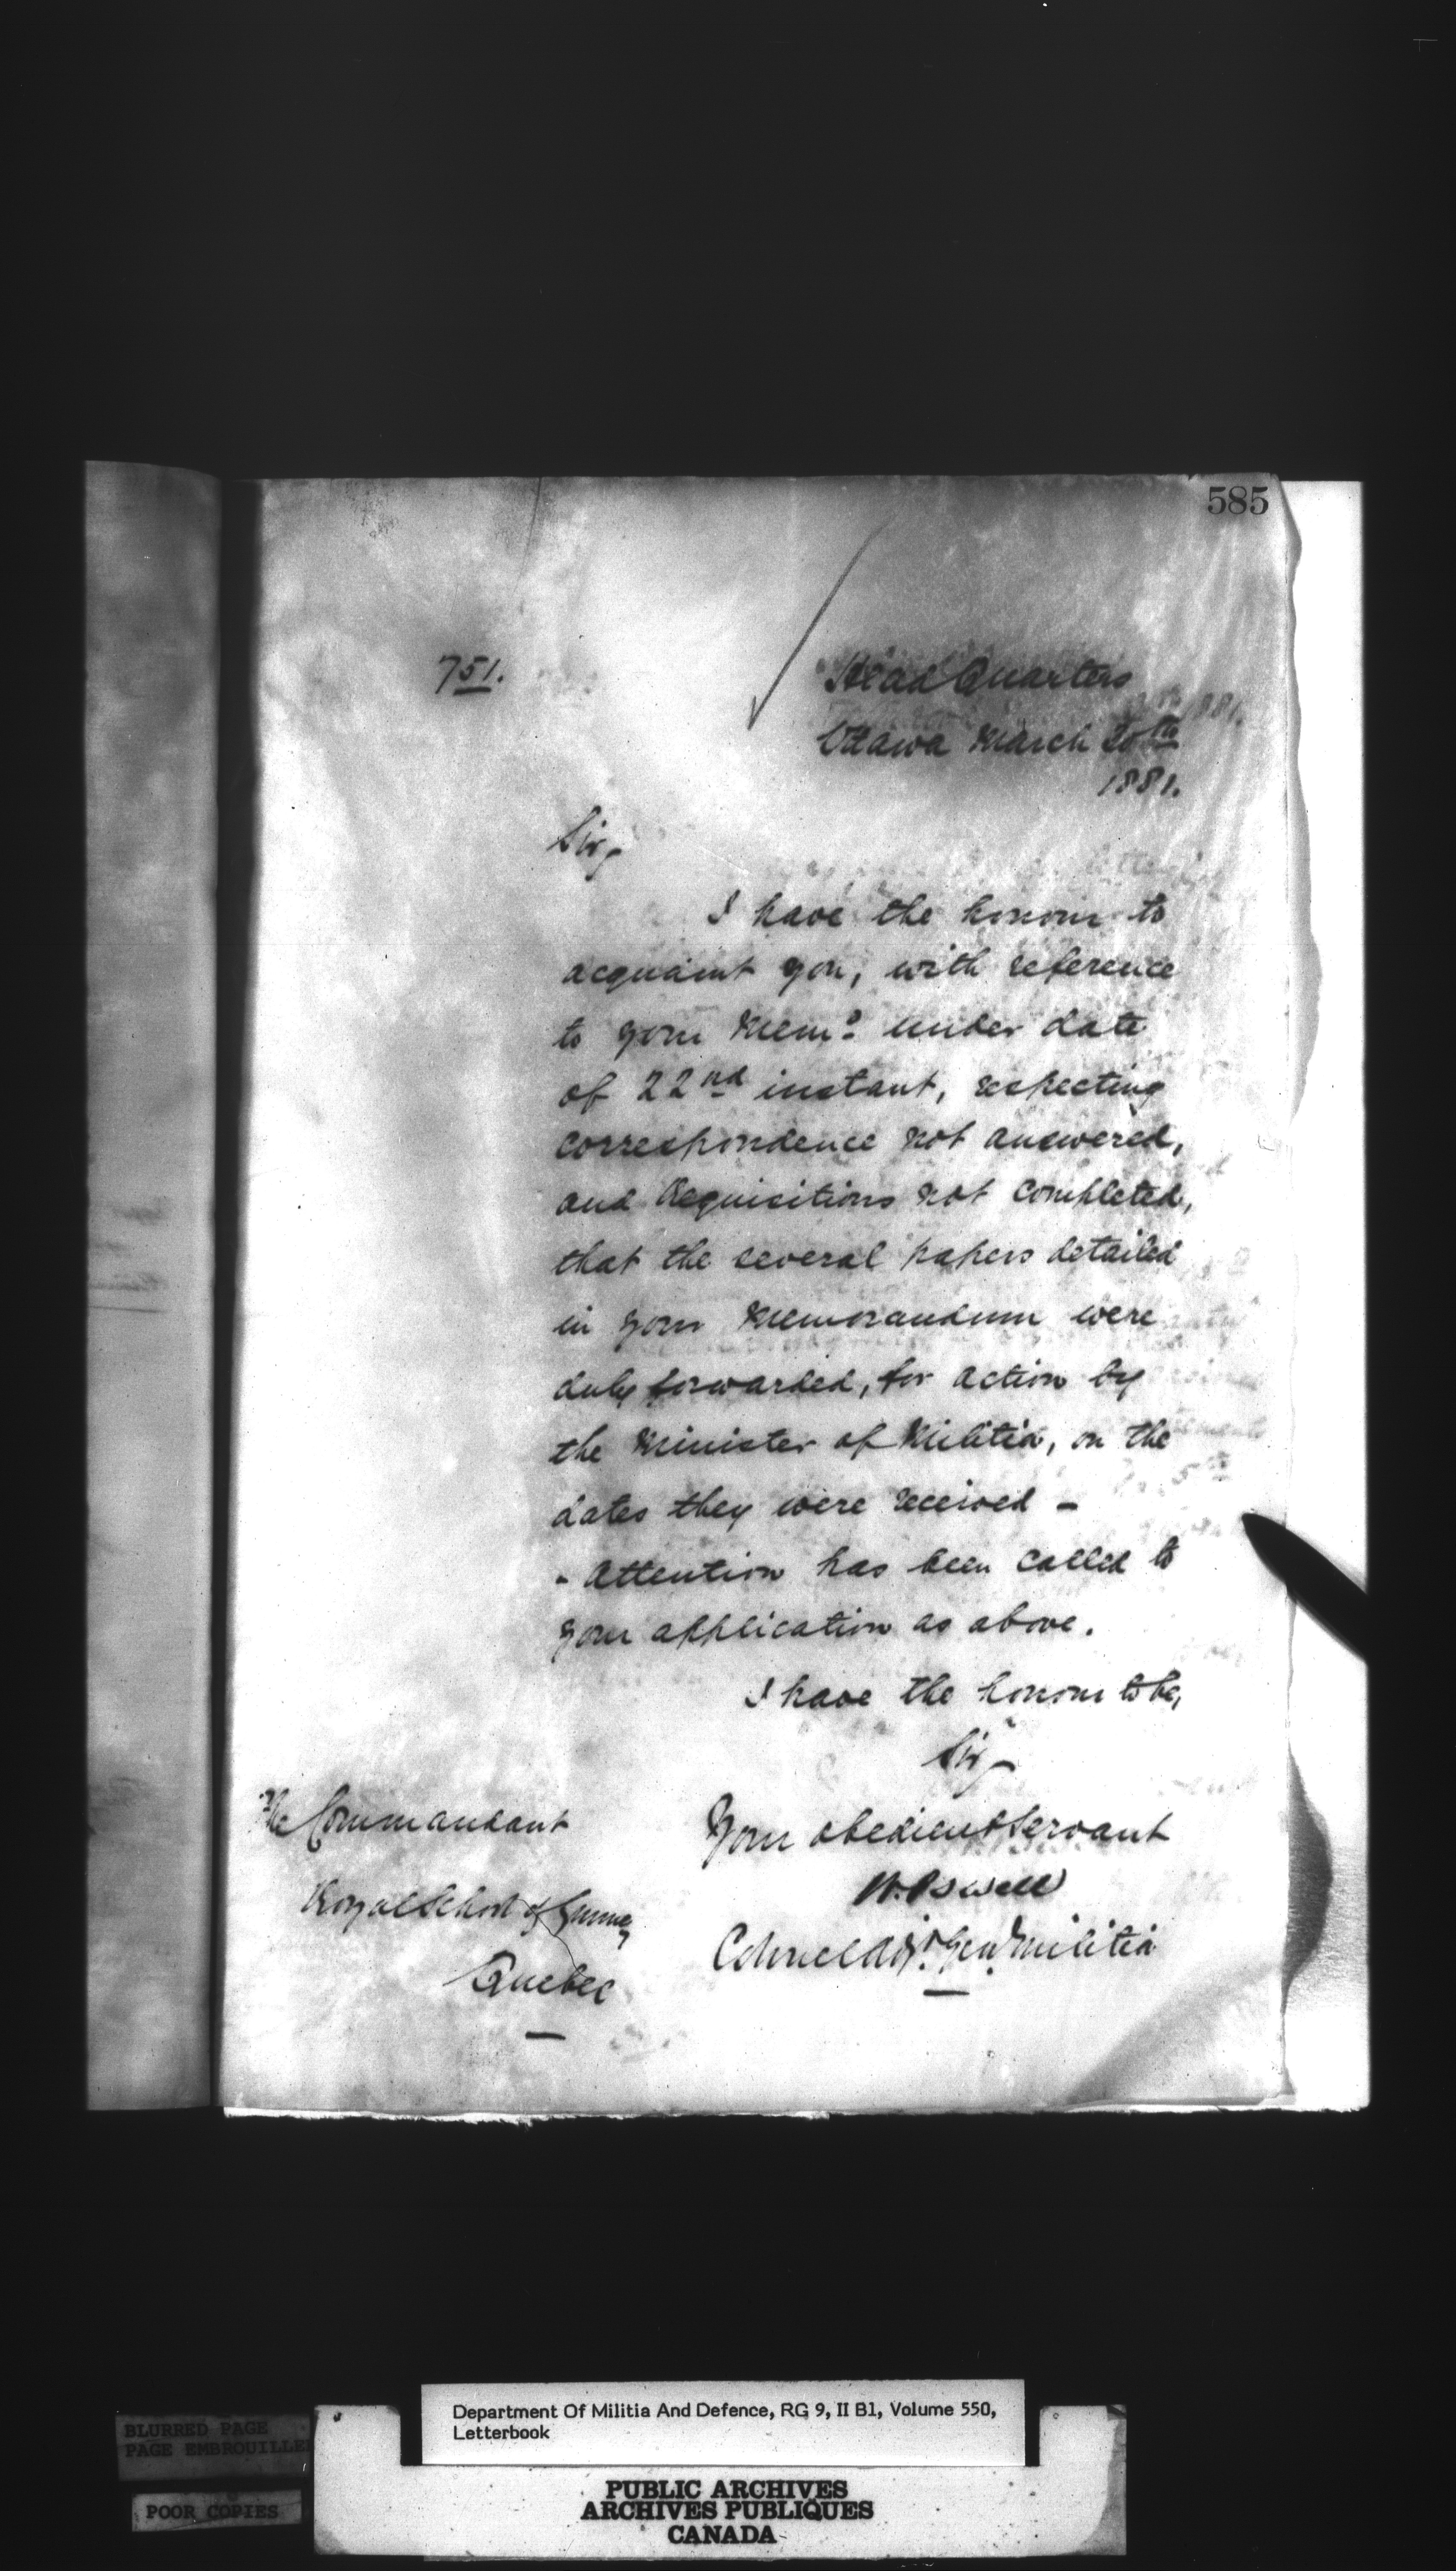 585
751.
Head Quarters
Ottawa March
1881.
Sir,
I have the honour to
acquaint you, with reference
to your Memo. under date
of 22nd instant, respecting
correspondence not answered,
and Requisitions not completed,
that the several papers detailed
in your Memorandum were
duly forwarded, for action by
the Minister of Militia, on the
dates they were received -
- Attention has been called to
your application as above.
I have the honour to be,
Sir,
Your obedient Servant
W. Powell
Colonel Adjt. Genl. Militia
The Commandant
Royal School of Gunnery
Quebec
Department Of Militia And Defence, RG 9, II B1, Volume 550,
Letterbook
BLURRED PAGE
PAGE EMBROUILLEE
POOR COPIES
PUBLIC ARCHIVES
ARCHIVES PUBLIQUES
CANADA